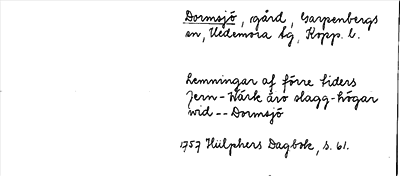 Dormsjö, gård, Garpenbergs
sn, Hedemora tg, Kopp. l.
Lemningar af förre tiders
Jern-Wärk äro slagg-högar
wid -- Dormsjö
1757 Hülphers Dagbok, s. 61.